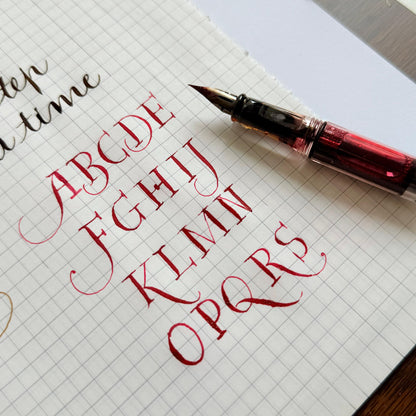 step
a time
ABCDE
FGHIJ
KLMN
OPQRS